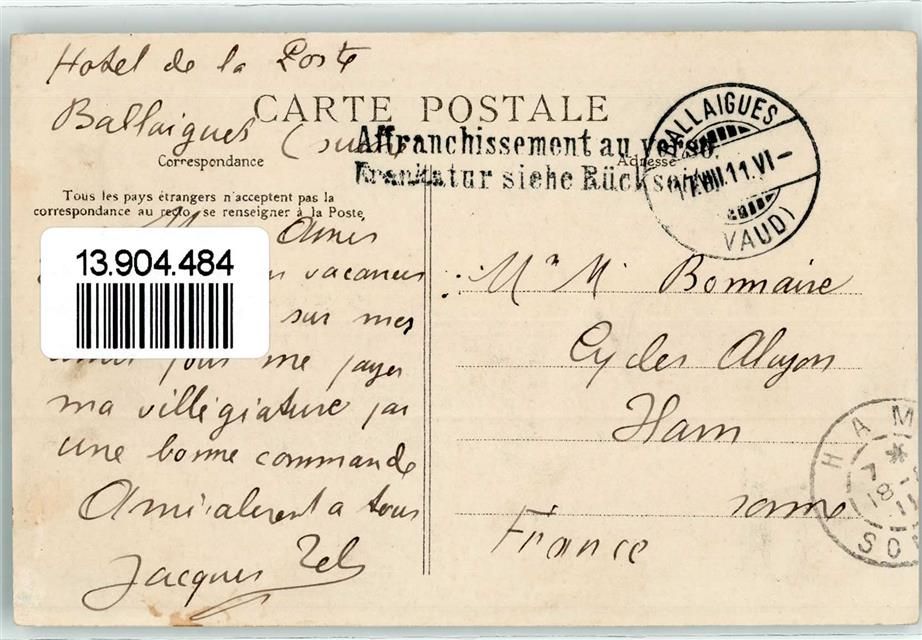 Hotel de la Poste
Ballaigues (suisse)
CARTE POSTALE
Correspondance
Adresse
Affranchissement au verso.
Frankatur siehe Rückseite.
BALLAIGUES
17.VIII.11.VI-
(VAUD)
Tous les pays étrangers n'acceptent pas la
correspondance au recto, se renseigner à la Poste
Amis
13.904.484
vacances
sur mes
pour me payer
ma villégiature par
une bonne commande
Amicalement a tous
Jacques
Mr M. Bonnaire
Cycles Alcyon
Ham
Somme
France
HAM
7
18
11
SO